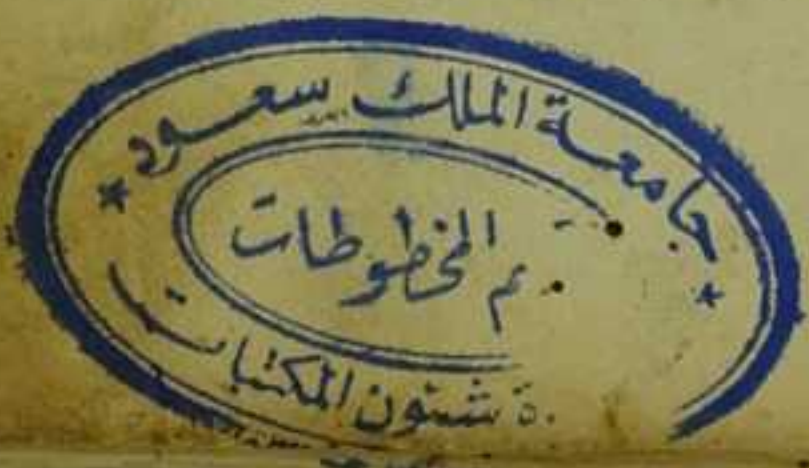 جامعة الملك سعود
م المخطوطات
ة شئون المكتبات